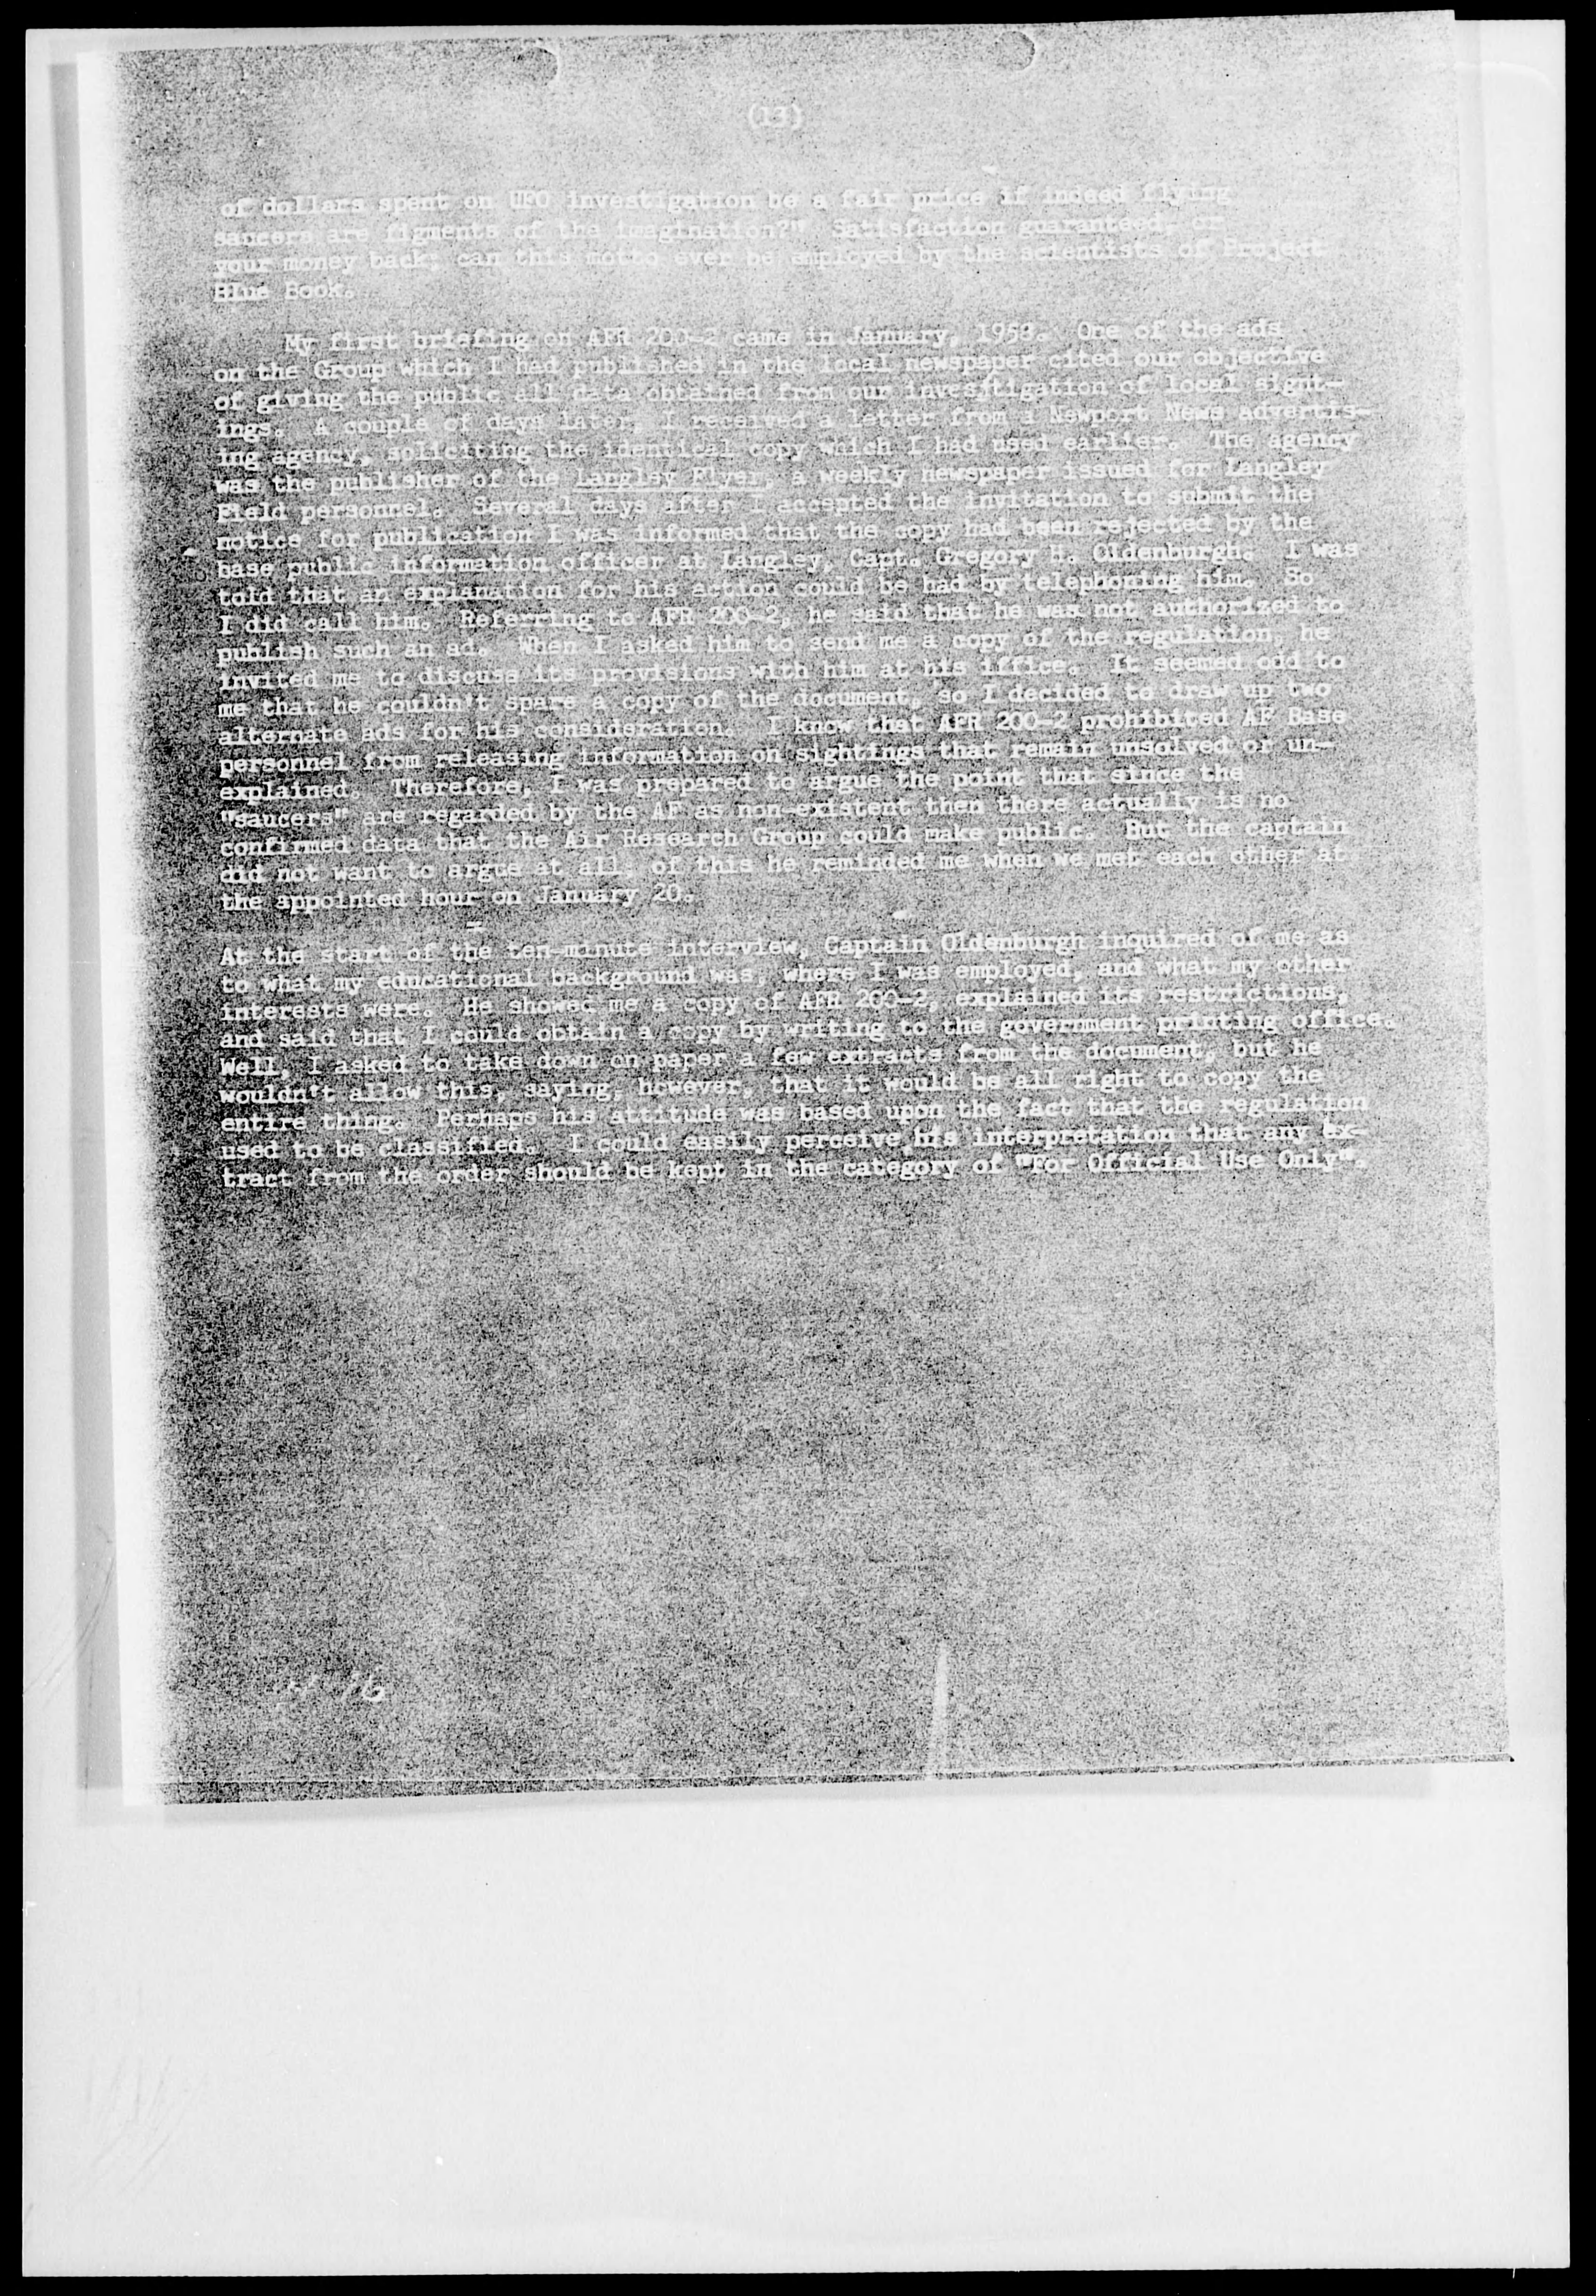 (13)
of dollars spent on UFO investigation be a fair price if indeed flying
saucers are figments of the imagination?" Satisfaction guaranteed, or
your money back; can this motto ever be employed by the scientists of Project
Blue Book.
My first briefing on AFR 200-2 came in January, 1958. One of the ads
on the Group which I had published in the local newspaper cited our objective
of giving the public all data obtained from our investigation of local sight-
ings. A couple of days later, I received a letter from a Newport News advertis-
ing agency, soliciting the identical copy which I had used earlier. The agency
was the publisher of the Langley Flyer, a weekly newspaper issued for Langley
Field personnel. Several days after I accepted the invitation to submit the
notice for publication I was informed that the copy had been rejected by the
base public information officer at Langley, Capt. Gregory H. Oldenburgh. I was
told that an explanation for his action could be had by telephoning him. So
I did call him. Referring to AFR 200-2, he said that he was not authorized to
publish such an ad. When I asked him to send me a copy of the regulation, he
invited me to discuss its provisions with him at his iffice. It seemed odd to
me that he couldn't spare a copy of the document, so I decided to draw up two
alternate ads for his consideration. I know that AFR 200-2 prohibited AF Base
personnel from releasing information on sightings that remain unsolved or un-
explained. Therefore, I was prepared to argue the point that since the
"saucers" are regarded by the AF as non-existent then there actually is no
confirmed data that the Air Research Group could make public. But the captain
did not want to argue at all, of this he reminded me when we met each other at
the appointed hour on January 20.
At the start of the ten-minute interview, Captain Oldenburgh inquired of me as
to what my educational background was, where I was employed, and what my other
interests were. He showed me a copy of AFR 200-2, explained its restrictions,
and said that I could obtain a copy by writing to the government printing office.
Well, I asked to take down on paper a few extracts from the document, but he
wouldn't allow this, saying, however, that it would be all right to copy the
entire thing. Perhaps his attitude was based upon the fact that the regulation
used to be classified. I could easily perceive his interpretation that any ex-
tract from the order should be kept in the category of "For Official Use Only".